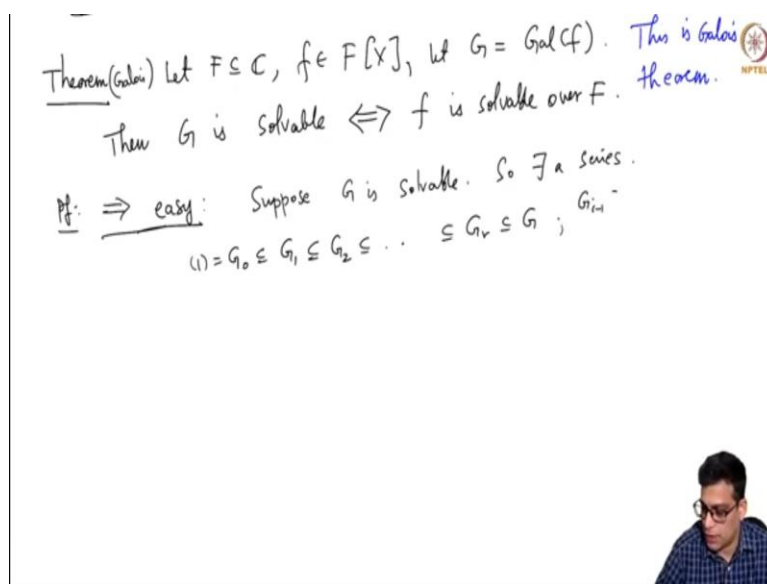 Theorem (Galois) Let F ⊆ ℂ, f ∈ F[X], let G = Gal(f). This is Galois theorem.
Then G is solvable ⟺ f is solvable over F.
Pf: ⇒ easy: Suppose G is solvable. So ∃ a series.
(1) = G₀ ⊆ G₁ ⊆ G₂ ⊆ .. ⊆ Gᵣ ⊆ G ; Gᵢ₋₁
NPTEL